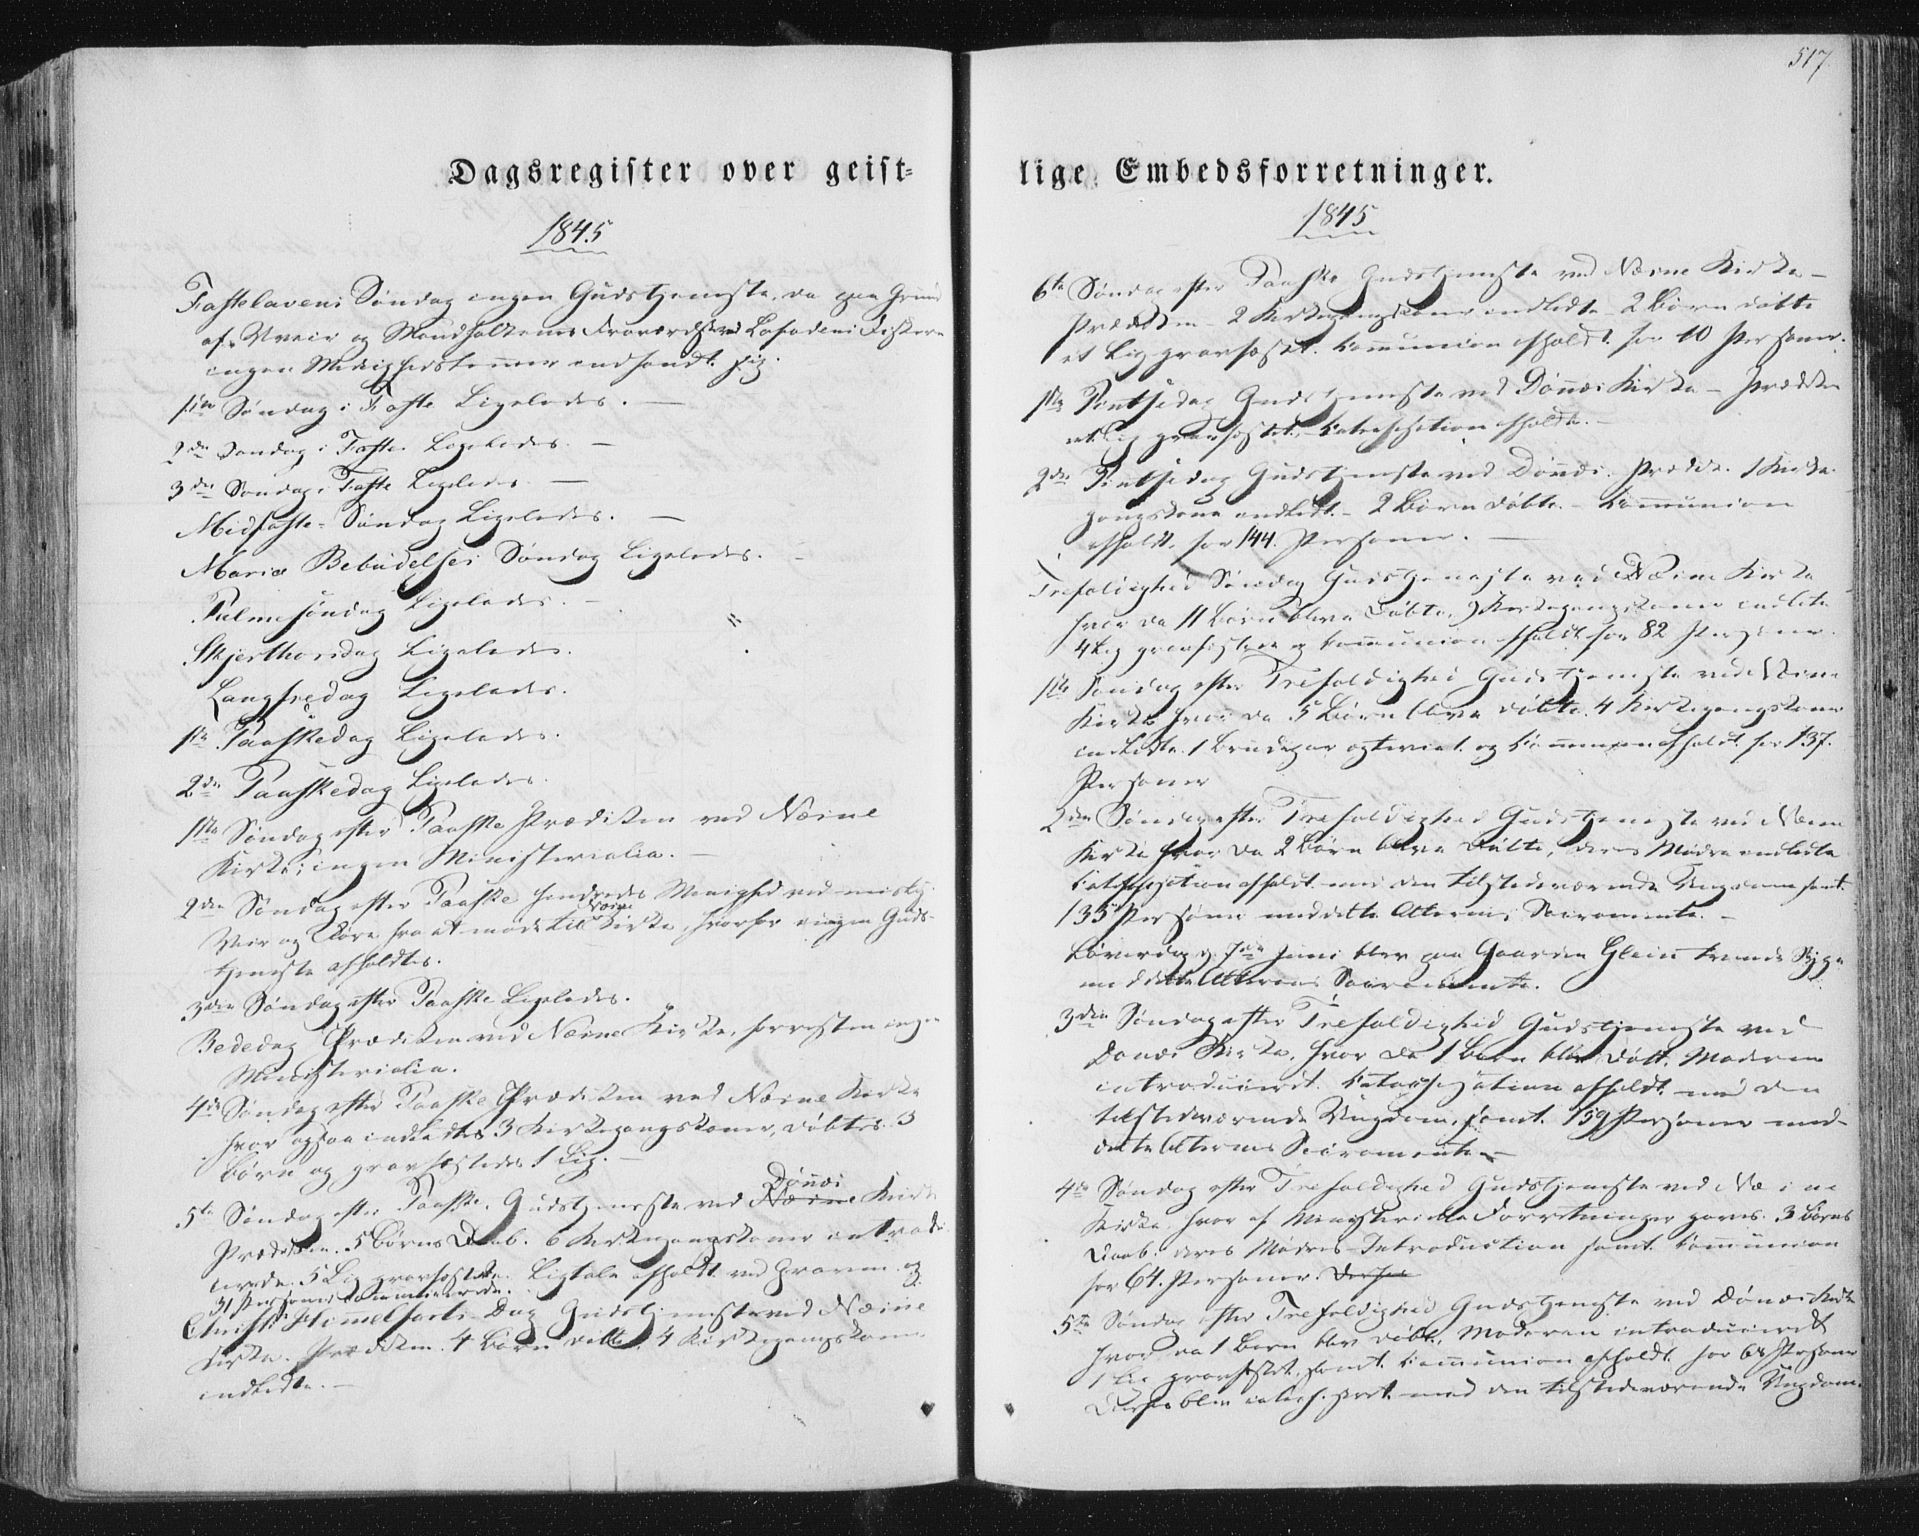 Dagsregister over geist-
1845
Fastelavens Søndag ingen Gudstjeneste, da paa Grund
af Uveir og Mandfolkenes Fraværelse ved Lofodens Fiskerie
ingen Menighedslemmer indfandt sig.
1ste Søndag i Faste Ligeledes. —
2den Søndag i Faste Ligeledes. —
3die Søndag i Faste Ligeledes. —
Midfaste-Søndag Ligeledes. —
Mariæ Bebudelses Søndag Ligeledes. —
Palmesøndag Ligeledes. —
Skjerthorsdag Ligeledes.
Langfredag Ligeledes.
1ste Paaskedag Ligeledes.
2den Paaskedag Ligeledes.
1ste Søndag efter Paaske Prædiken ved Næsne
Kirke, ingen Ministerialia. —
2den Søndag efter Paaske hindredes Menighed ved misligt
Næsne
Veir og Føre fra at møde til Kirke, hvorfor ingen Guds-
tjeneste afholdtes.
3die Søndag efter Paaske Ligeledes.
Bededag Prædiken ved Næsne Kirke, forresten ingen
Ministerialia.
4de Søndag efter Paaske Prædiken ved Næsne Kirke
hvor ogsaa indledtes 3 Kirkegangskoner, døbtes 3
Børn og gravfæstedes 1 Lig. —
Dønæs
5te Søndag efter Paaske. Gudstjeneste ved Næsne Kirke
Prædiken. 5 Børns Daab. 6 Kirkegangskoner introdu-
cerede. 5 Lig gravfæstede. Ligtale afholdt ved Graven og
31 Personer communicerede.
Christi Himmelfarts Dag Gudstjeneste ved Næsne
Kirke. Prædiken. 4 Børn døbte. 4 Kirkegangskoner
indledte. —
517.
lige Embedsforretninger.
1845
6te Søndag efter Paaske Gudstjeneste ved Næsne Kirke —
Prædiken 2 Kirkegangskoner indledte 2 Børn døbte
et Lig gravfæstet. Communion afholdt for 10 Personer.
1ste Pintsedag Gudstjeneste ved Dønæs Kirke — Prædiken
et Lig gravfæstet. Catechisation afholdt. —
2den Pintsedag Gudstjeneste ved Dønæs. Prædiken. 1 Kirke-
gangskone indledt. — 2 Børn døbte. — Communion
afholdt for 144 Personer. —
Trefoldighed Søndag Gudstjeneste ved Næsne Kirke
hvor da 11 Børn bleve døbte, 9 Kirkegangskoner indledte
4 Lig gravfæstede og Communion afholdt for 82 Personer.
1ste Søndag efter Trefoldighed Gudstjeneste ved Næsne
Kirke hvor da 5 Børn bleve døbte. 4 Kirkegangskoner
indledte. 1 Brudepar ogteviet og Communion afholdt for 137.
Personer
2den Søndag efter Trefoldighed Gudstjeneste ved Næsne
Kirke hvor da 2 Børn bleve døbte, deres Mødre indledte
Catechisation afholdt med den tilstedeværende Ungdom samt
135 Personer meddelte Alterens Sacramente. —
Løverdag d. 7de Juni blev paa Gaarden Glein tvende Syge
meddelte Alterens Sacramente.
3die Søndag efter Trefoldighed Gudstjeneste ved
Dønæs Kirke, hvor da 1 Barn blev døbt, Moderen
introduceret. Catechisation afholdt med den
tilstedeværende Ungdom, samt 159 Personer med-
delte Alterens Sacramente —
4de Søndag efter Trefoldighed Gudstjeneste ved Næsne
Kirke, hvor af Ministerielle Forretninger gaves. 3 Børns
Daab. deres Mødres Introduction samt Communion
for 64 Personer.
5te Søndag efter Trefoldighed Gudstjeneste ved Dønæs Kirke
hvor da 1 Barn blev døbt, Moderen introduceret
1 Lig gravfæstet. samt Communion afholdt for 68 Personer
blev catechiseret med den tilstedeværende Ungdom.